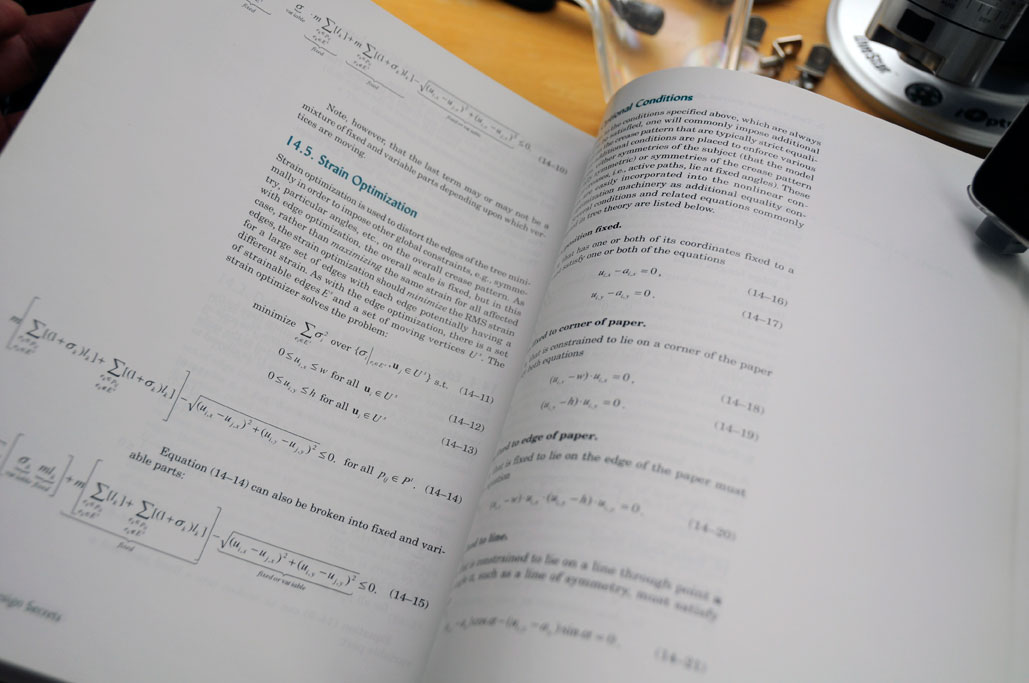 σ · m ∑[l_k] + m ∑[(1+σ_k)l_k] − √((u_{i,x} − u_{j,x})² + (u_{i,y} − u_{j,y})²) ≤ 0. (14–10)
variable
fixed
fixed
fixed
fixed or variable
Note, however, that the last term may or may not be a
mixture of fixed and variable parts depending upon which ver-
tices are moving.
14.5. Strain Optimization
Strain optimization is used to distort the edges of the tree mini-
mally in order to impose other global constraints, e.g., symme-
try, particular angles, etc., on the overall crease pattern. As
with edge optimization, the overall scale is fixed, but in this
case, rather than maximizing the same strain for all affected
edges, the strain optimization should minimize the RMS strain
for a large set of edges with each edge potentially having a
different strain. As with the edge optimization, there is a set
of strainable edges E' and a set of moving vertices U'. The
strain optimizer solves the problem:
minimize ∑ σ_i² over {σ_i|, u_i ∈ U'} s.t. (14–11)
0 ≤ u_{i,x} ≤ w for all u_i ∈ U' (14–12)
0 ≤ u_{i,y} ≤ h for all u_i ∈ U' (14–13)
m[∑[(1+σ_k)l_k] + ∑[(1+σ_k)l_k]] − √((u_{i,x} − u_{j,x})² + (u_{i,y} − u_{j,y})²) ≤ 0. for all p_{ij} ∈ P'. (14–14)
Equation (14–14) can also be broken into fixed and vari-
able parts:
σ ml + m[∑[l_k] + ∑[(1+σ_k)l_k]] − √((u_{i,x} − u_{j,x})² + (u_{i,y} − u_{j,y})²) ≤ 0. (14–15)
variable fixed
fixed
fixed or variable
Secrets
Conditions
conditions specified above, which are always
satisfied, one will commonly impose additional
crease pattern that are typically strict equali-
conditions are placed to enforce various
other symmetries of the subject (that the model
symmetric) or symmetries of the crease pattern
i.e., active paths, lie at fixed angles). These
easily incorporated into the nonlinear con-
machinery as additional equality con-
conditions and related equations commonly
in tree theory are listed below.
fixed.
that has one or both of its coordinates fixed to a
satisfy one or both of the equations
u_{i,x} − a_{i,x} = 0, (14–16)
u_{i,y} − a_{i,y} = 0. (14–17)
fixed to corner of paper.
that is constrained to lie on a corner of the paper
both equations
(u_{i,x} − w)·u_{i,x} = 0, (14–18)
(u_{i,y} − h)·u_{i,y} = 0. (14–19)
to edge of paper.
that is fixed to lie on the edge of the paper must
− w)·u_{i,x}·(u_{i,y} − h)·u_{i,y} = 0. (14–20)
to line.
is constrained to lie on a line through point a
such as a line of symmetry, must satisfy
(14–21)